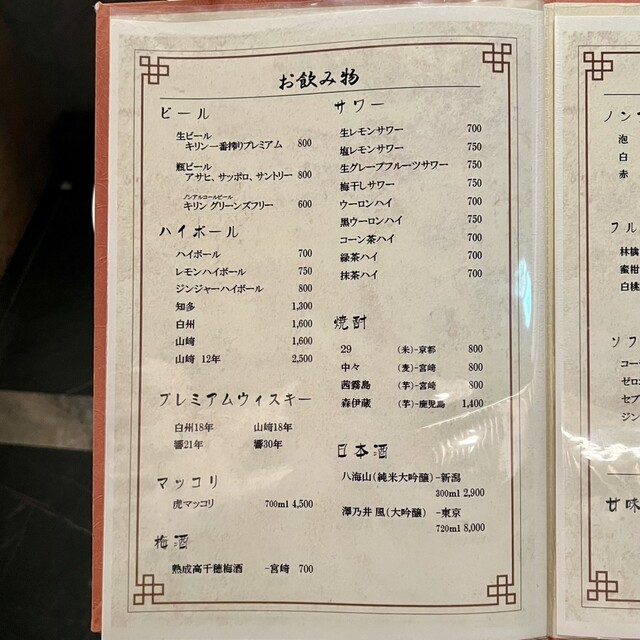 お飲み物
ビール
生ビール
キリン一番搾りプレミアム 800
瓶ビール
アサヒ、サッポロ、サントリー 800
ノンアルコールビール
キリン グリーンズフリー 600
ハイボール
ハイボール 700
レモンハイボール 750
ジンジャーハイボール 800
知多 1,300
白州 1,600
山崎 1,600
山崎 12年 2,500
プレミアムウィスキー
白州18年 山崎18年
響21年 響30年
マッコリ
虎マッコリ 700ml 4,500
梅酒
熟成高千穂梅酒 -宮崎 700
サワー
生レモンサワー 700
塩レモンサワー 750
生グレープフルーツサワー 750
梅干しサワー 750
ウーロンハイ 700
黒ウーロンハイ 750
コーン茶ハイ 700
緑茶ハイ 700
抹茶ハイ 700
焼酎
29 (米)-京都 800
中々 (麦)-宮崎 800
茜霧島 (芋)-宮崎 800
森伊蔵 (芋)-鹿児島 1,400
日本酒
八海山(純米大吟醸)-新潟
300ml 2,900
澤乃井 凰(大吟醸) -東京
720ml 8,000
ノン
泡
白
赤
フル
林檎
蜜柑
白桃
ソフ
コー
ゼロ
セブ
ジン
甘味